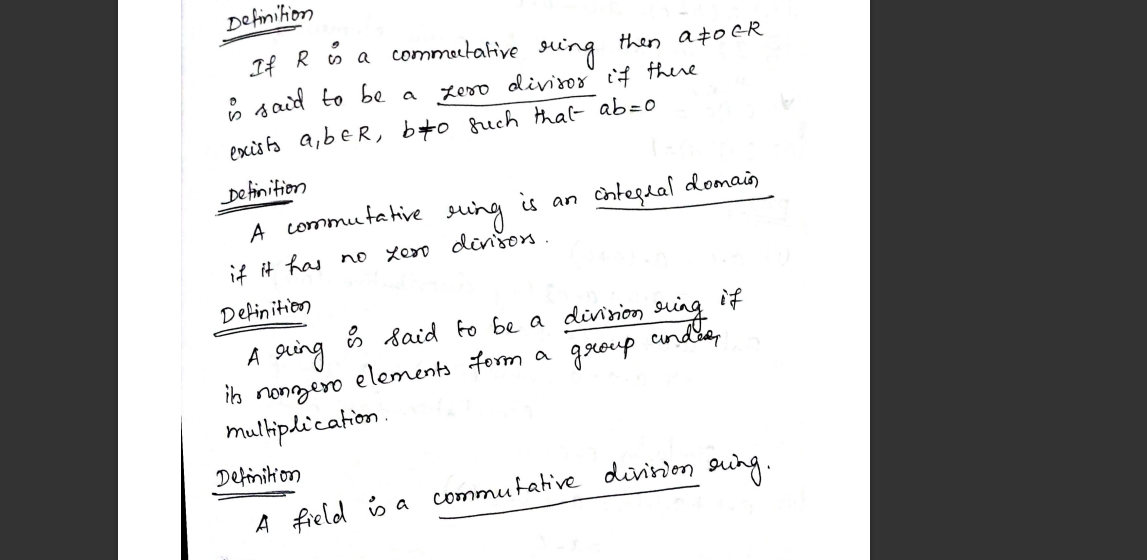 Definition
If R is a commutative ring then a≠0∈R
is said to be a zero divisor if there
exists a,b∈R, b≠0 such that ab=0
Definition
A commutative ring is an integral domain
if it has no zero divisors.
Definition
A ring is said to be a division ring if
its nonzero elements form a group under
multiplication.
Definition
A field is a commutative division ring.